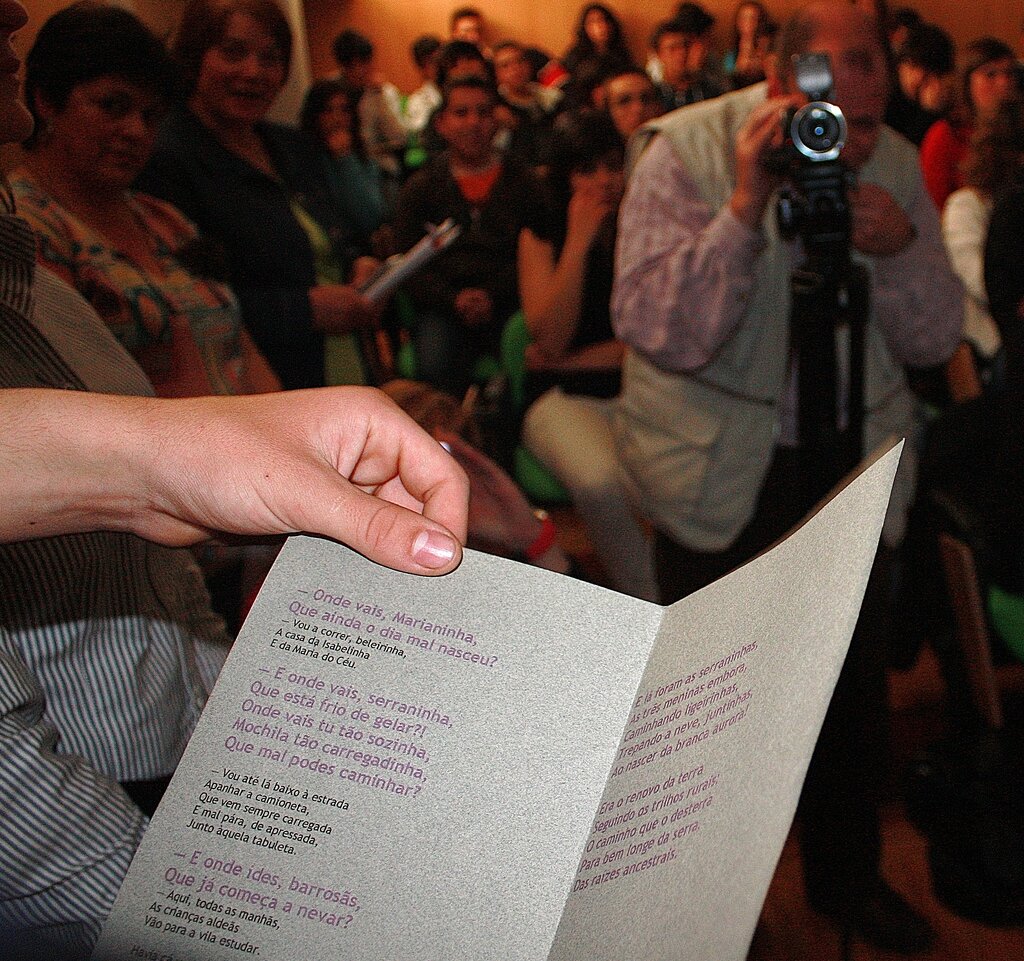 — Onde vais, Marianinha,
Que ainda o dia mal nasceu?
— Vou a correr, beleirinha,
À casa da Isabelinha
E da Maria do Céu.
— E onde vais, serraninha,
Que está frio de gelar?!
Onde vais tu tão sozinha,
Mochila tão carregadinha,
Que mal podes caminhar?
— Vou até lá baixo à estrada
Apanhar a camioneta,
Que vem sempre carregada
E mal pára, de apressada,
Junto àquela tabuleta.
— E onde ides, barrosãs,
Que já começa a nevar?
— Aqui, todas as manhãs,
As crianças aldeãs
Vão para a vila estudar.
Havia
E lá foram as serraninhas,
As três meninas embora,
Caminhando ligeirinhas,
Trepando a neve, juntinhas,
Ao nascer da branca aurora!
Era o renovo da terra
Seguindo os trilhos rurais,
O caminho que o desterra
Para bem longe da serra,
Das raízes ancestrais.